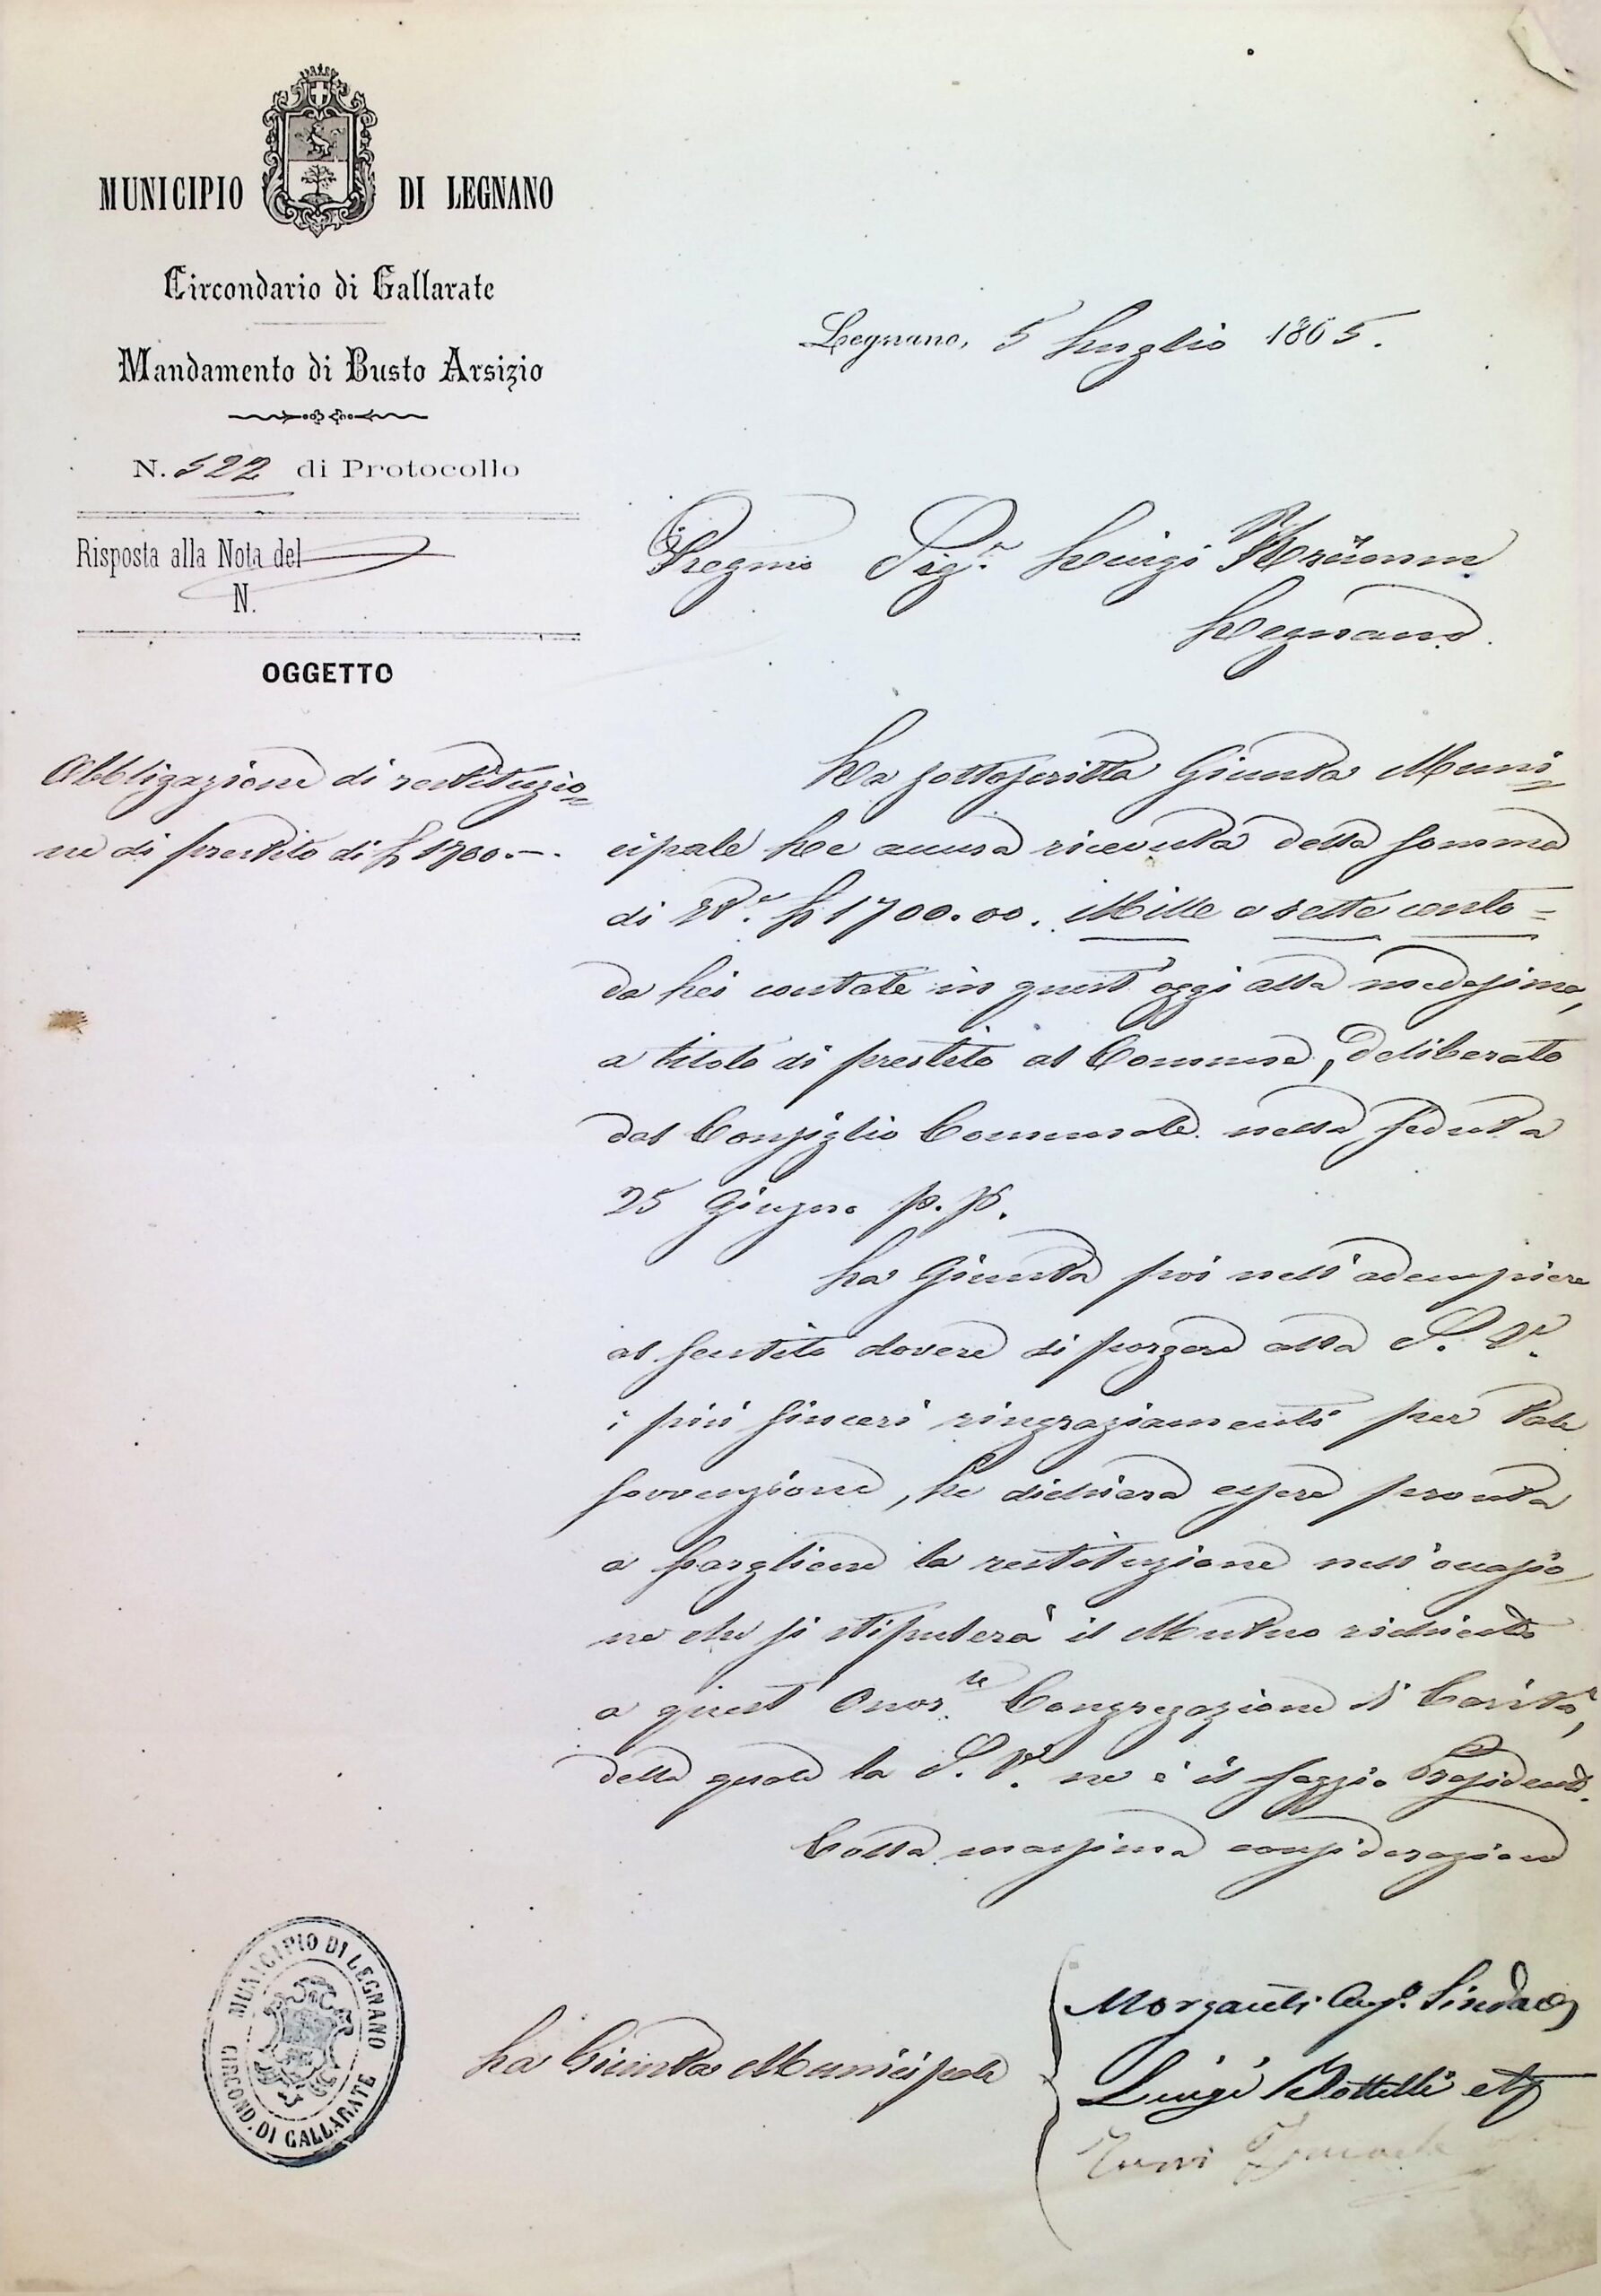 MUNICIPIO DI LEGNANO
Circondario di Gallarate
Mandamento di Busto Arsizio
N. 522 di Protocollo
Risposta alla Nota del
N.
OGGETTO
Obbligazione di restituzio=
ne di prestito di £ 1700.—.
Legnano, 5 Luglio 1865.
Pregmo Sigr. Luigi Krümm
Legnano.
La sottoscritta Giunta Muni=
cipale Le accusa ricevuta della somma
di £ 1700.00. Mille e sette cento =
da Lei contate in quest'oggi alla medesima,
a titolo di prestito al Comune, deliberato
dal Consiglio Comunale nella seduta
25 Giugno p. p.
La Giunta poi nell'adempiere
al sentito dovere di porgere alla S. V.
i più sinceri ringraziamenti per tale
sovvenzione, Le dichiara essere pronta
a fargliene la restituzione nell'occasio=
ne che si stipulerà il Mutuo richiesto
a quest' Onor.le Congregazione di Carità,
della quale la S. V. ne è il saggio Presidente.
Colla massima considerazione
La Giunta Municipale
Morganti Sindaco
Luigi
MUNICIPIO DI LEGNANO
CIRCOND. DI GALLARATE